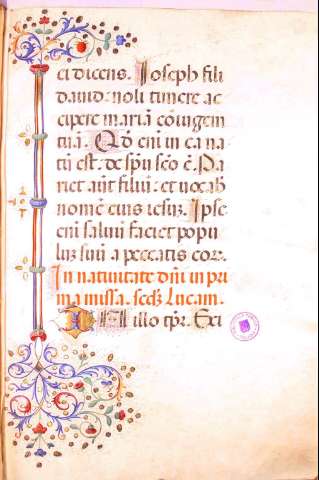 ei dicens. Ioseph fili
dauid: noli timere ac
cipere mariā cōiugem
tuā. Qd̄ eni in ea na
tū est: de spū scō ē. Pa
riet aūt filiū: et uocab
nomē eius iesuz. Ipse
eni saluū faciet popu
luz suū a peccatis eor.
In natiuitate dn̄i in pri
ma missa. secd̄z Lucam.
IN illo tp̄r. Exi